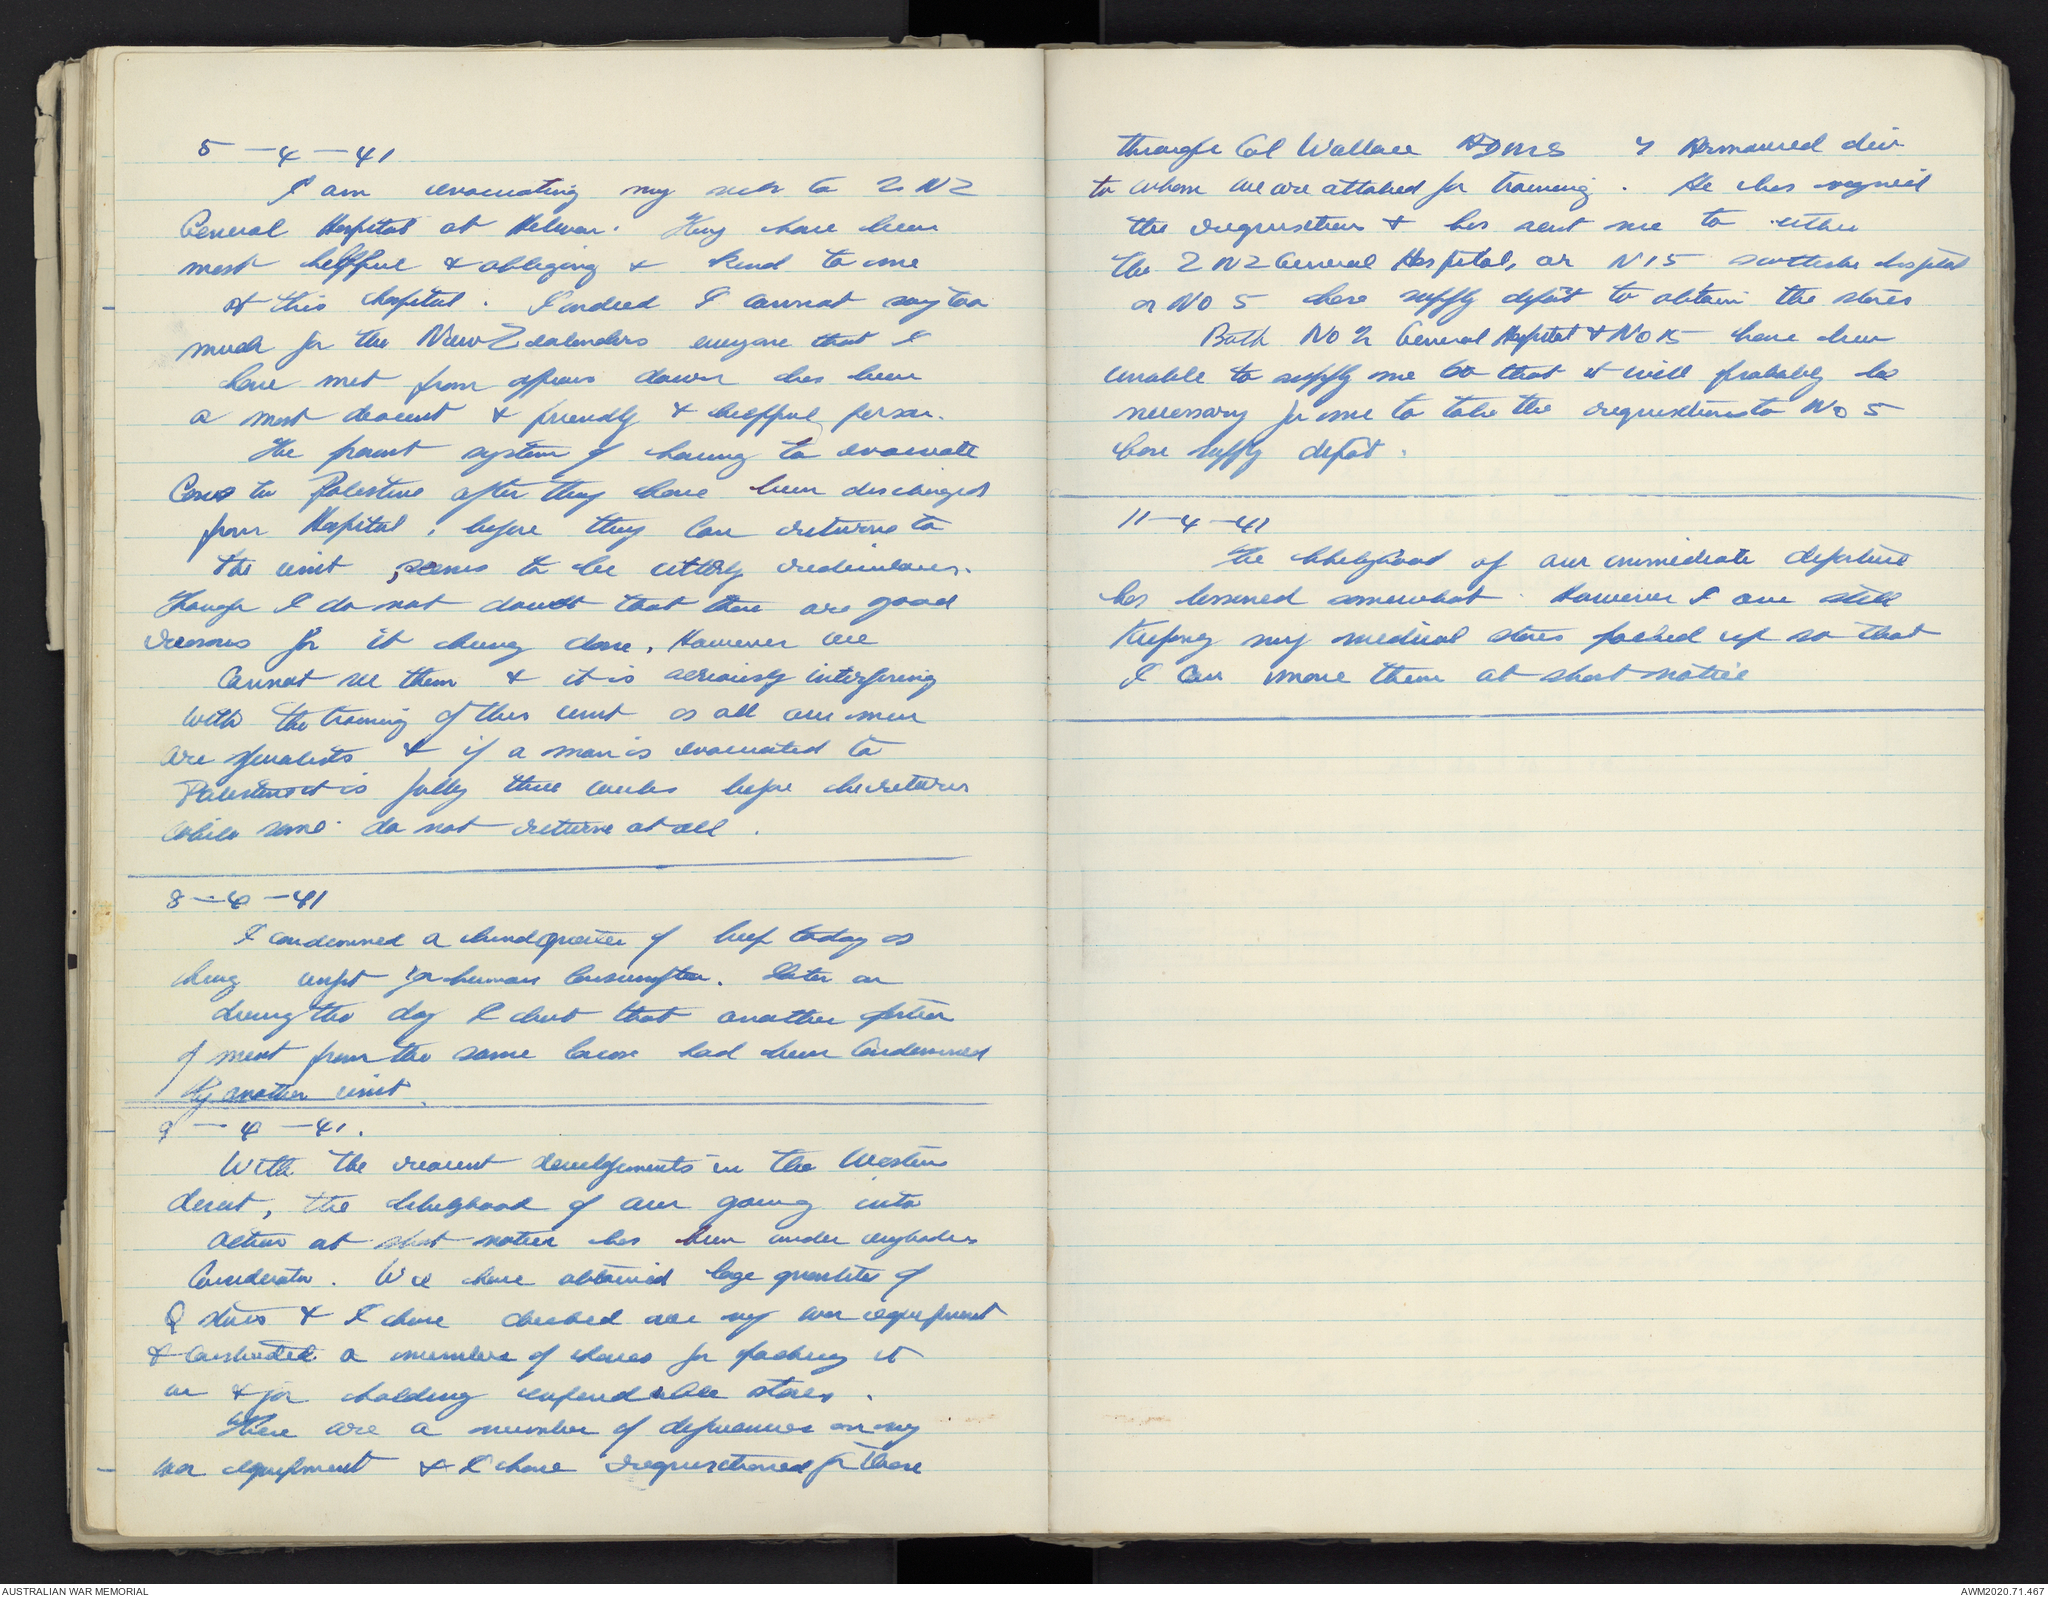 5-4-41
I am evacuating my sick to 2 NZ
General Hospital at Helwan. They have been
most helpful & obliging & kind to me
at this hospital. Indeed I cannot say too
much for the New Zealanders everyone that I
have met from officers down has been
a most decent & friendly & helpful person.
The present system of having to evacuate
Cases to Palestine after they have been discharged
from Hospital, before they can return to
the unit, seems to be utterly rediculous.
Though I do not doubt that there are good
reasons for it being done. However we
Cannot see them & it is seriously interfering
with the training of this unit as all our men
are specialists & if a man is evacuated to
Palestine it is fully three weeks before he returns
while some do not return at all.
8-4-41
I condemned a hindquarter of beef today as
being unfit for human Consumption. Later on
during the day I heard that another portion
of meat from the same Source had been Condemned
By another unit.
9-4-41.
With the recent developments in the Western
desert, the likelyhood of our going into
Action at short notice has been under
Consideration. We have obtained large quantities of
Q stores & I have checked over my war equipment
& Constructed a number of boxes for packing it
in & for holding expendable stores.
There are a number of deficiencies in my
war equipment & I have requisitioned for these
through Col Wallace ADMS 7 Armoured div
to whom we are attached for training. He has signed
the requisitions & has sent me to either
the 2 NZ General Hospital, or N15 Scottish hospital
or No 5 base supply depôt to obtain the stores
Both No 2 General Hospital & No 15 have been
unable to supply me so that it will probably be
necessary for me to take the requisitions to No 5
base supply depôt.
11-4-41
The likelyhood of our immediate departure
has lessened somewhat. However I am still
Keeping my medical stores packed up so that
I Can move them at short notice
AUSTRALIAN WAR MEMORIAL
AWM2020.71.467